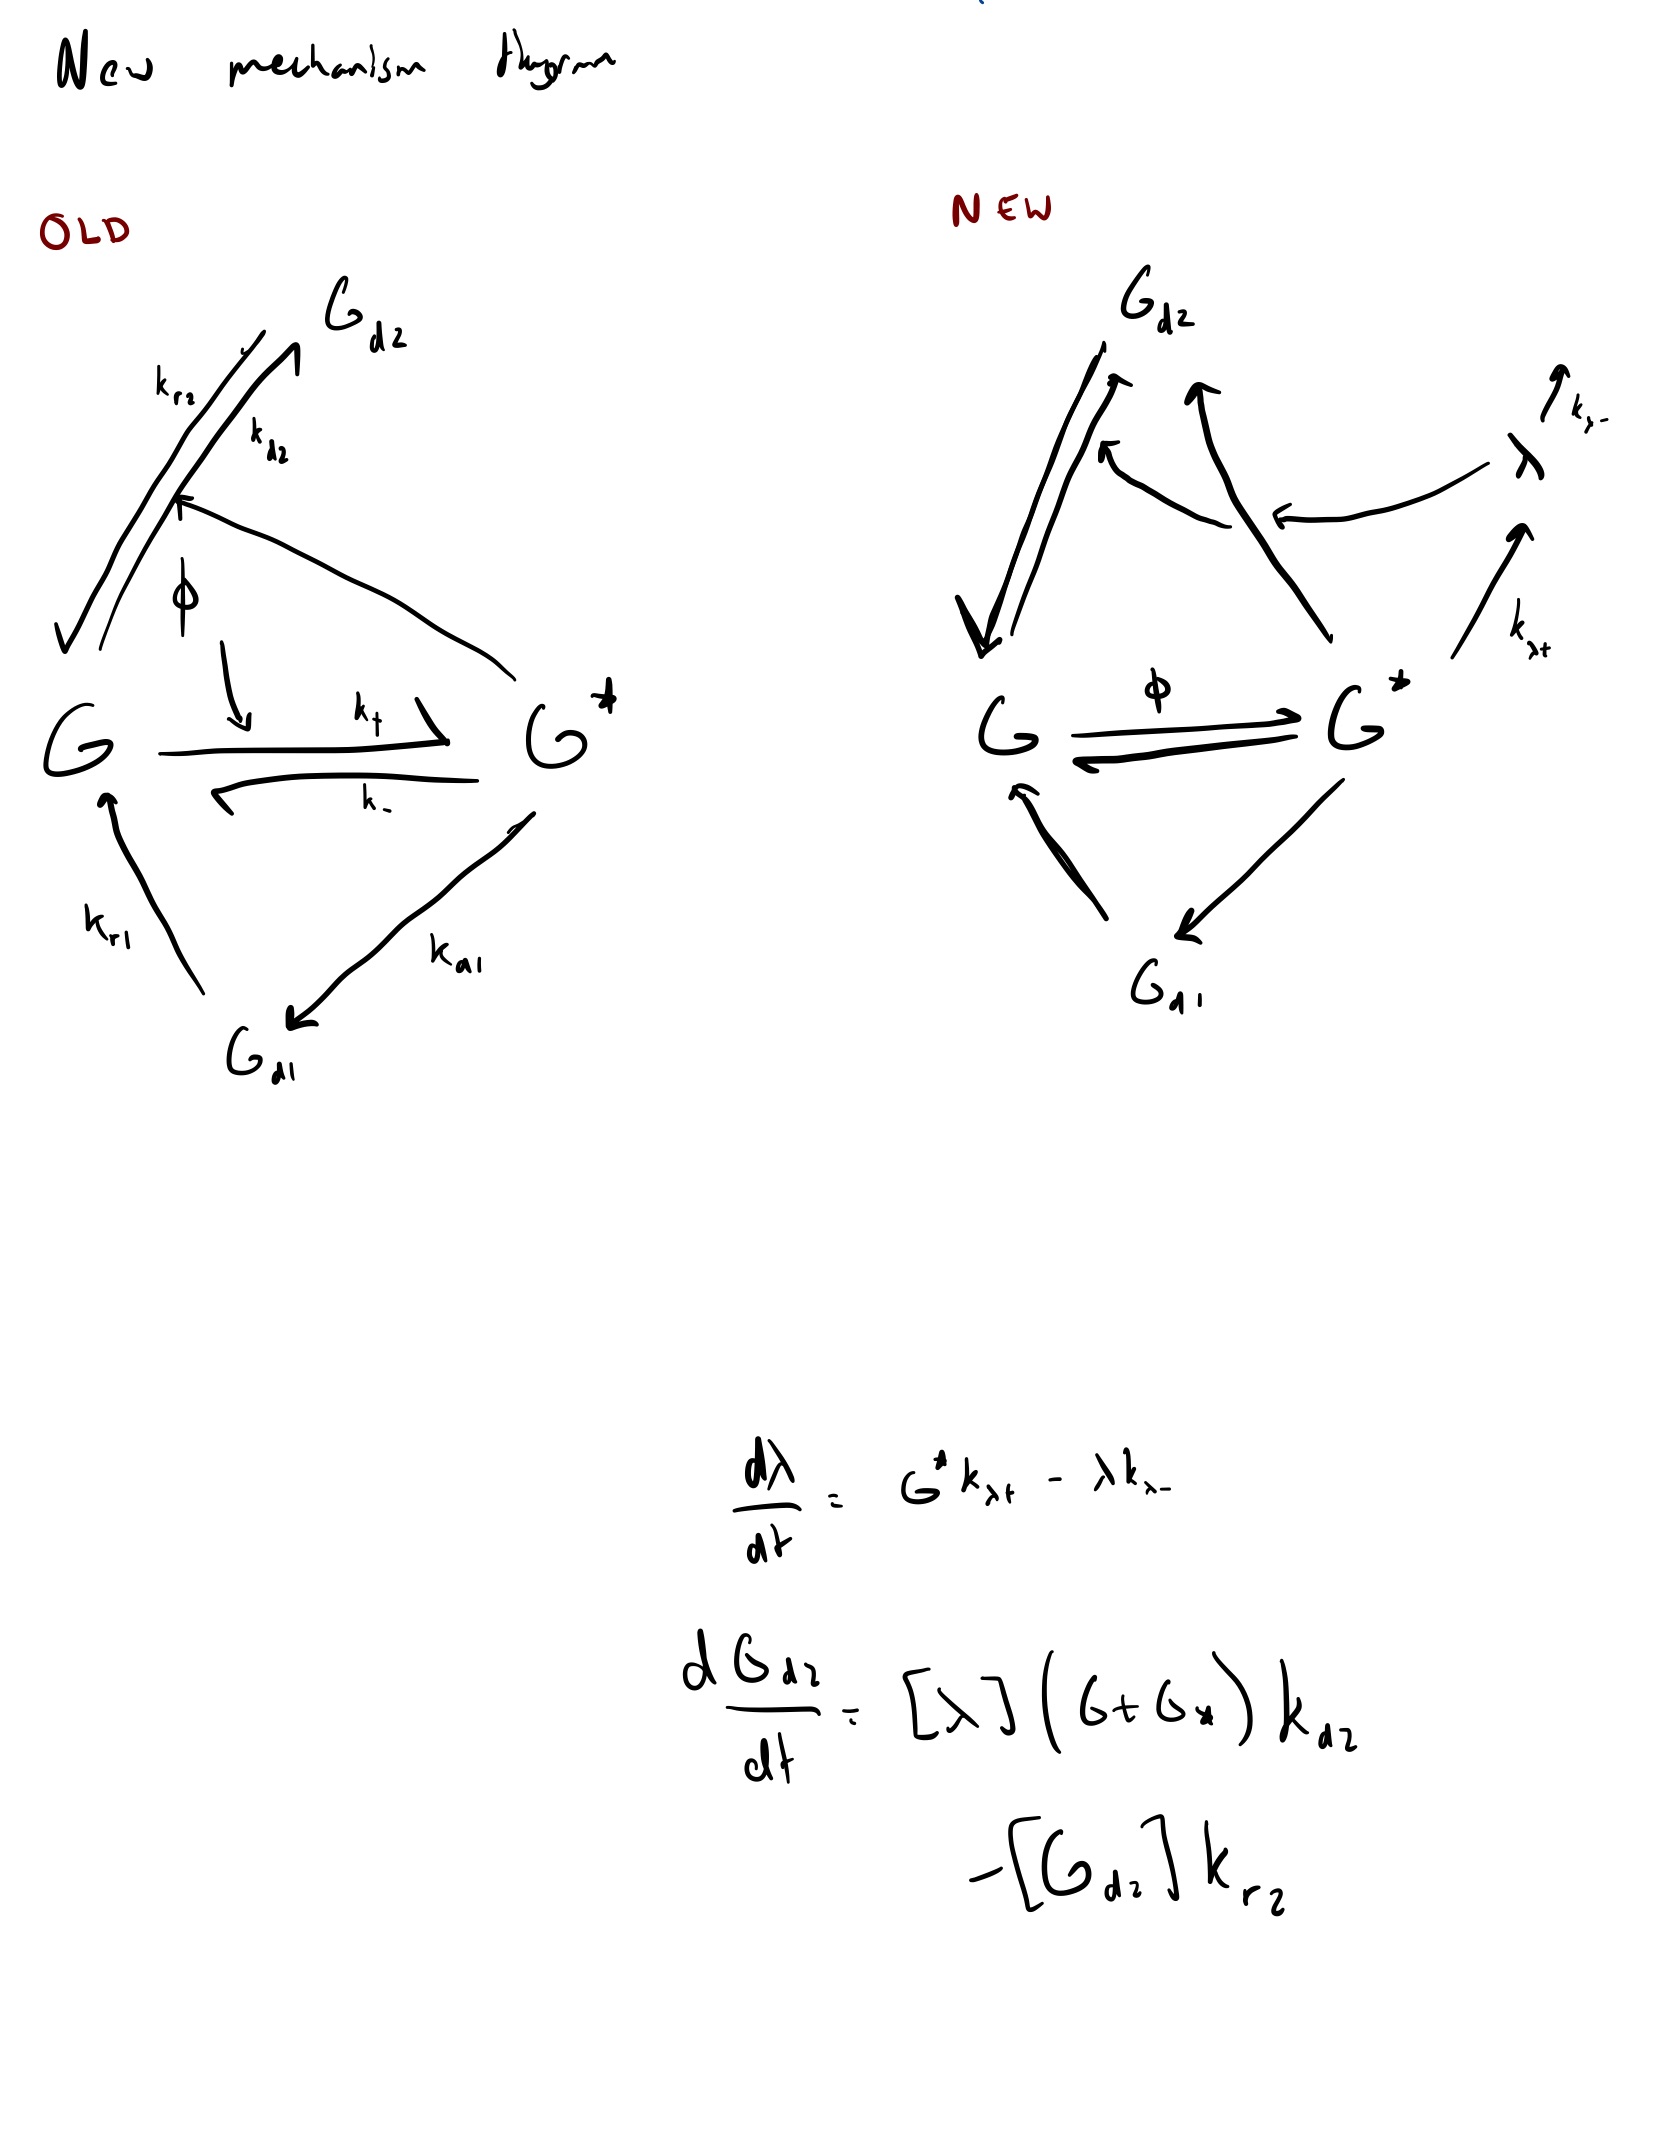 New mechanism
OLD
NEW
G_{d2}
k_{r2}
k_{d2}
ϕ
k_+
G
G*
k_-
k_{r1}
k_{d1}
G_{d1}
G_{d2}
k_{λ-}
λ
k_{λ+}
ϕ
G
G*
G_{d1}
dλ/dt = G* k_{λ+} - λ k_{λ-}
dG_{d2}/dt = [λ] (G + G_*) k_{d2}
- [G_{d2}] k_{r2}